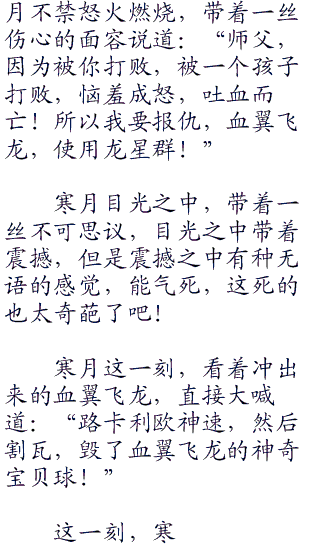 月不禁怒火燃烧，带着一丝
伤心的面容说道：“师父，
因为被你打败，被一个孩子
打败，恼羞成怒，吐血而
亡！所以我要报仇，血翼飞
龙，使用龙星群！”
寒月目光之中，带着一
丝不可思议，目光之中带着
震撼，但是震撼之中有种无
语的感觉，能气死，这死的
也太奇葩了吧！
寒月这一刻，看着冲出
来的血翼飞龙，直接大喊
道：“路卡利欧神速，然后
割瓦，毁了血翼飞龙的神奇
宝贝球！”
这一刻，寒